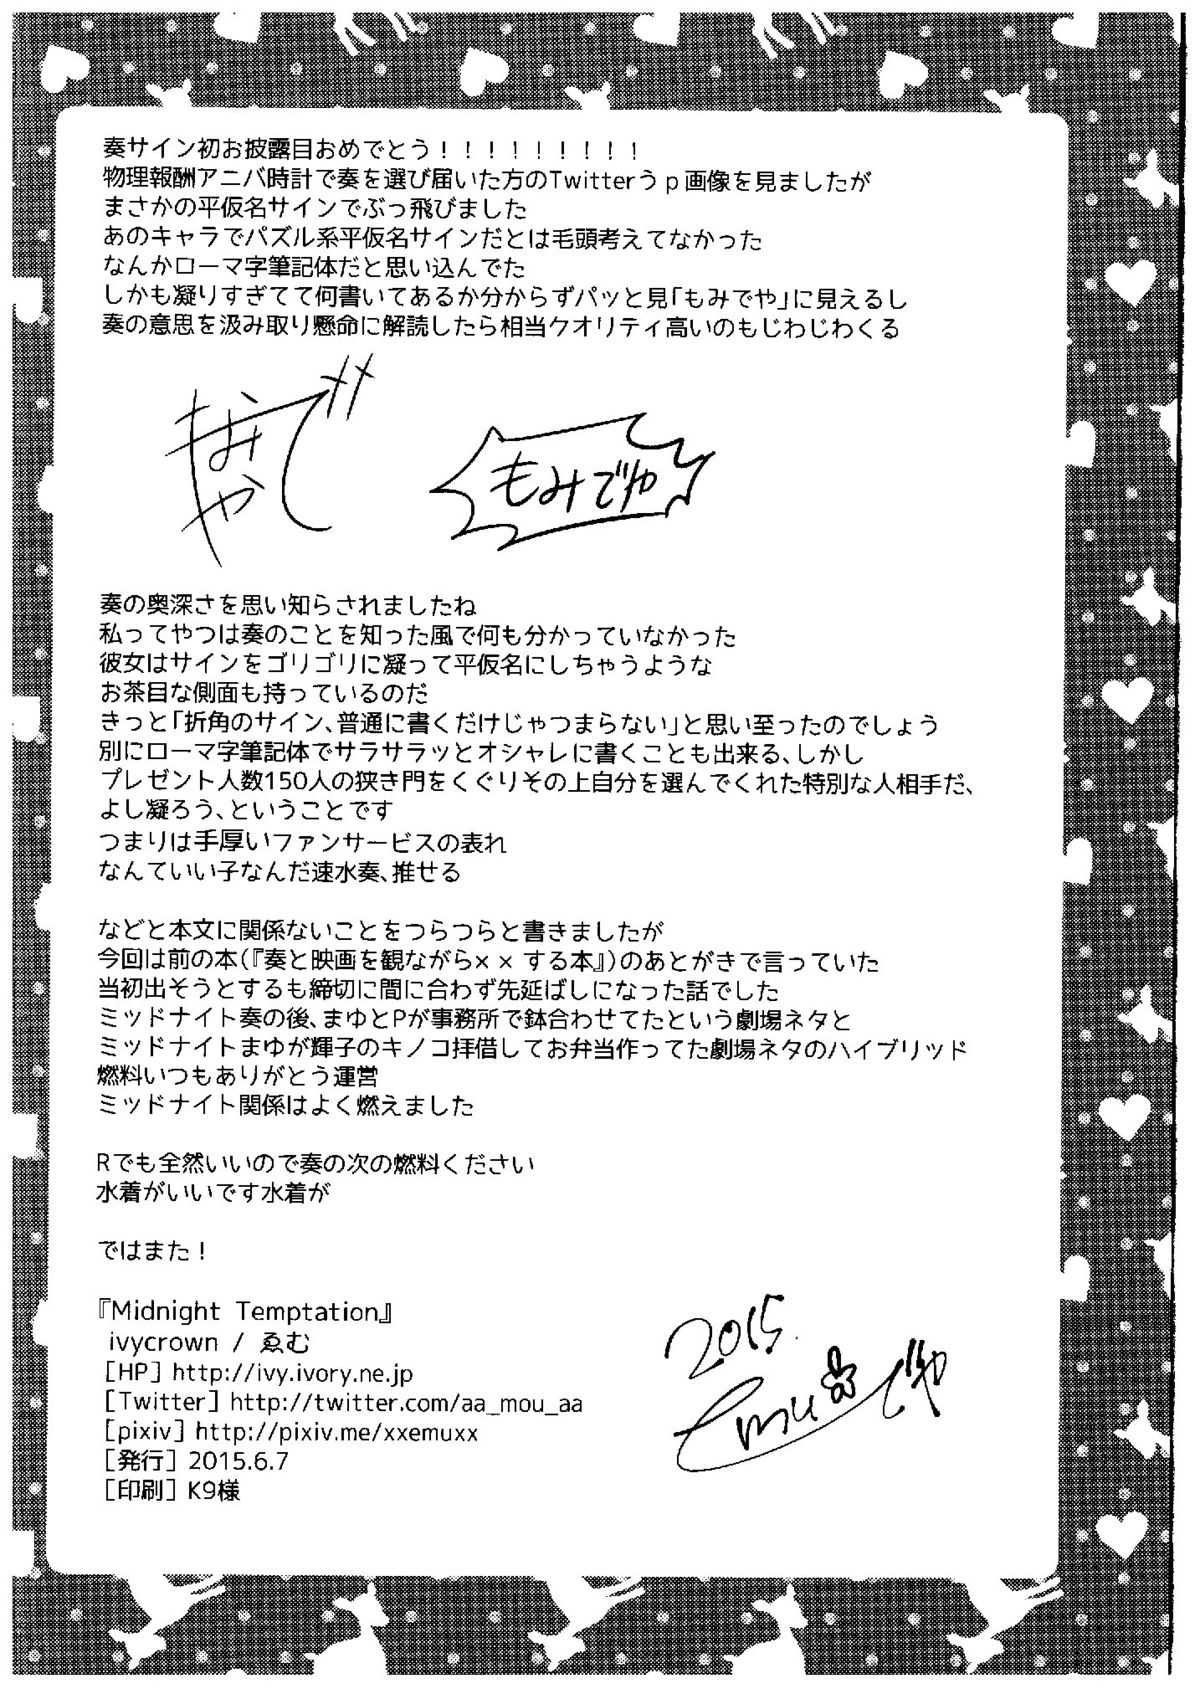 奏サイン初お披露目おめでとう！！！！！！！！！
物理報酬アニバ時計で奏を選び届いた方のTwitterうｐ画像を見ましたが
まさかの平仮名サインでぶっ飛びました
あのキャラでパズル系平仮名サインだとは毛頭考えてなかった
なんかローマ字筆記体だと思い込んでた
しかも凝りすぎてて何書いてあるか分からずパッと見「もみでや」に見えるし
奏の意思を汲み取り懸命に解読したら相当クオリティ高いのもじわじわくる
もみでや
奏の奥深さを思い知らされましたね
私ってやつは奏のことを知った風で何も分かっていなかった
彼女はサインをゴリゴリに凝って平仮名にしちゃうような
お茶目な側面も持っているのだ
きっと「折角のサイン、普通に書くだけじゃつまらない」と思い至ったのでしょう
別にローマ字筆記体でサラサラッとオシャレに書くことも出来る、しかし
プレゼント人数150人の狭き門をくぐりその上自分を選んでくれた特別な人相手だ、
よし凝ろう、ということです
つまりは手厚いファンサービスの表れ
なんていい子なんだ速水奏、推せる
などと本文に関係ないことをつらつらと書きましたが
今回は前の本（『奏と映画を観ながら××する本』）のあとがきで言っていた
当初出そうとするも締切に間に合わず先延ばしになった話でした
ミッドナイト奏の後、まゆとPが事務所で鉢合わせてたという劇場ネタと
ミッドナイトまゆが輝子のキノコ拝借してお弁当作ってた劇場ネタのハイブリッド
燃料いつもありがとう運営
ミッドナイト関係はよく燃えました
Rでも全然いいので奏の次の燃料ください
水着がいいです水着が
ではまた！
『Midnight Temptation』
ivycrown / ゑむ
[HP] http://ivy.ivory.ne.jp
[Twitter] http://twitter.com/aa_mou_aa
[pixiv] http://pixiv.me/xxemuxx
[発行] 2015.6.7
[印刷] K9様
2015
Emu
でや